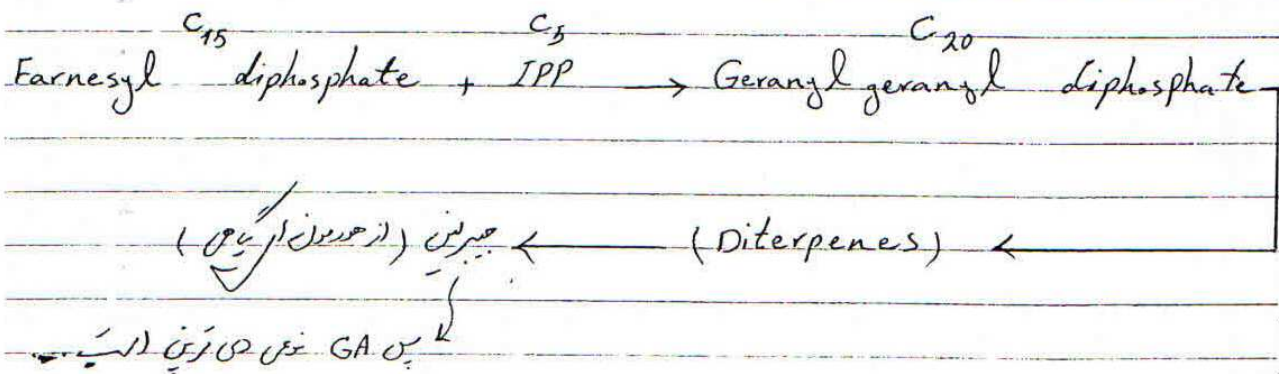 C15 C5 C20
Farnesyl diphosphate + IPP → Geranyl geranyl diphosphate
(Diterpenes) → جیبرلین (از هورمون‌های گیاهی)
پس GA نوعی دی ترپن است.